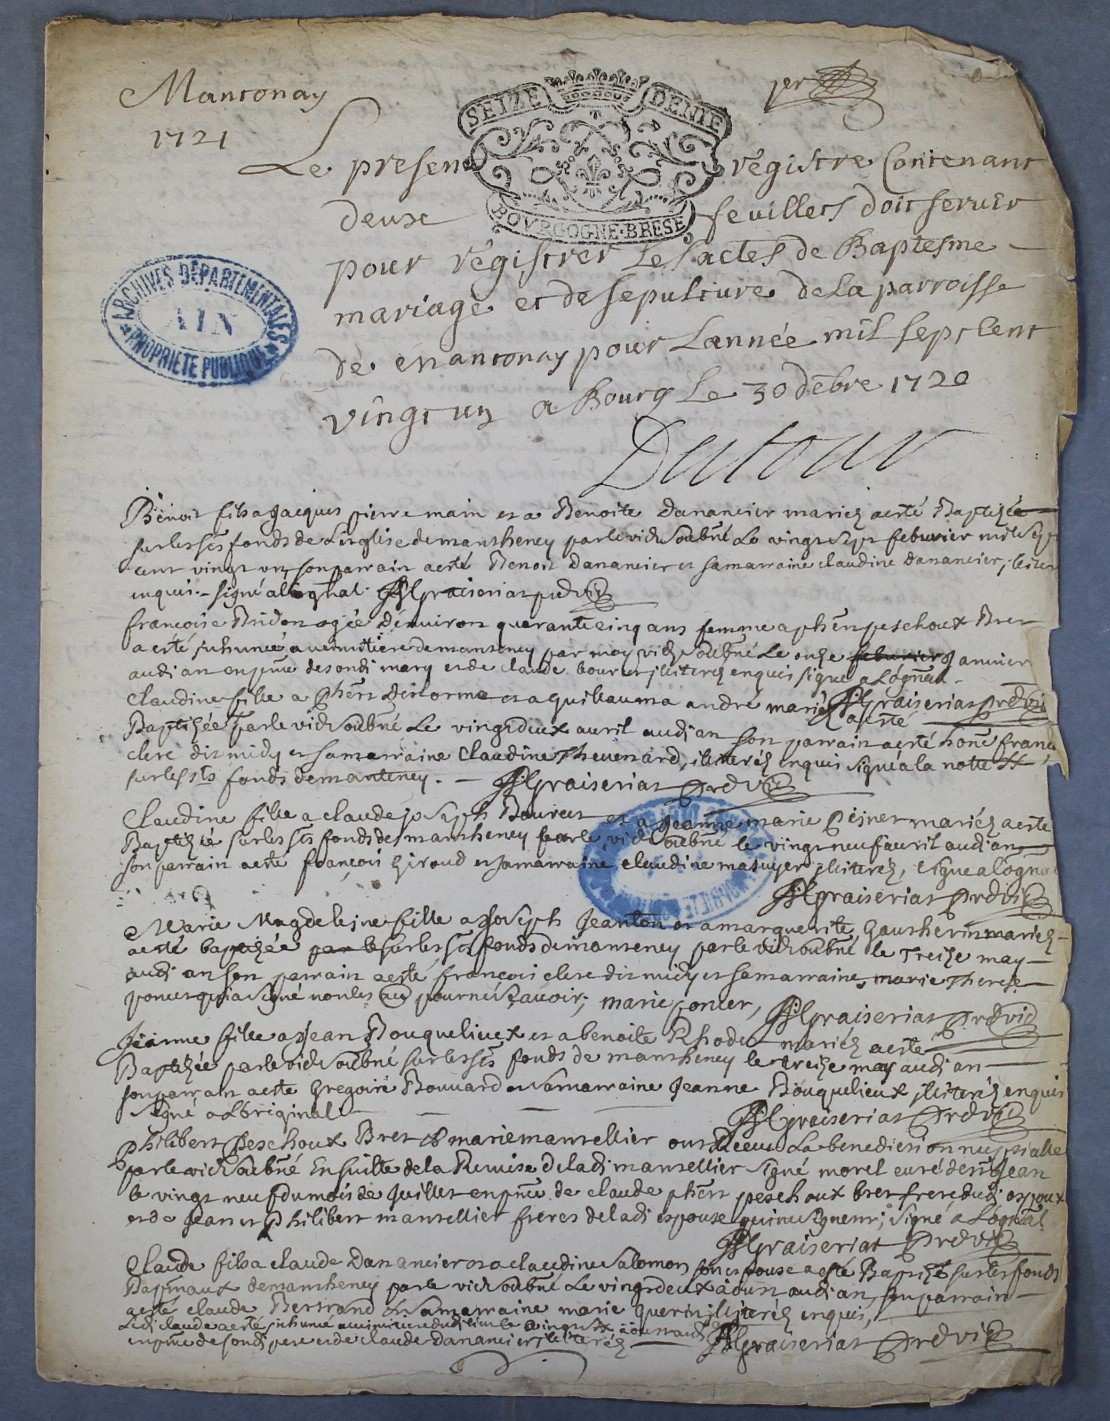 Mantonay
1721
per
SEIZE DENIE
BOVRGOGNE·BRESE
Le present régistre Contenant
deux feuillets doit servir
pour régistrer Les actes de Baptesme
mariage et de sepulture de La parroisse
de mantonay pour L'année mil sept Cent
vingt un a Bourg Le 30 debre 1720
Dutour
ARCHIVES DÉPARTEMENTALES
AIN
PROPRIÉTÉ PUBLIQUE
Benoit fils a Jacques pierre main et a Benoite Danancier mariez a esté Baptizée
sur les sts fonds de L'eglise de mantheney par le vic soubné Le vingt sept febvrier mil sept
cent vingt un, son parrain a esté Benoit Danancier et sa marraine claudine Danancier, illiter
enquis. signé a l'orignal. Praiserias pr vic
francoise Bridon agée d'environ quarante cinq ans femme a phert peschoux Bret
a esté inhumée au cimetiere de manteney par moy vic soubné Le onze febvrier janvier
audi an en pnce de son di mary et de claude bouret illiterez enquis signé a L'ognal.
Claudine fille a phert Delorme et a guillauma andré mariez a esté Praiserias pr vic
Baptizée par le vic soubné Le vingt deux avril audi an son parrain a esté hone franc
clerc dit midy et sa marraine Claudine Thevenard, illiterez enquis signé a la notte
sur les sts fonds de manteney. Praiserias pr vic
Claudine fille a claude joseph Bouret et a Jeanne marie mariez a esté
Baptizée sur les sts fonds de mantheney par le vic soubné le vingt neuf avril audi an
son parrain a esté françois giroud et sa marraine claudine masuyer illiterez, signé a L'ognal
Praiserias pr vic
Marie Magdeleine fille a Joseph Jeanton et a marguerite Gautherin mariez
a esté baptizée sur les sts fonds de manteney par le vic soubné le Treize may
audi an son parrain a esté françois clerc dit midy et sa marraine marie Therese
poncet qui a signé non les pour ne sçavoir; marie poncet, Praiserias pr vic
Jeanne fille a Jean Bouquelieux et a benoite Rhodet mariez a esté
Baptizée par le vic soubné sur les sts fonds de mantheney le treize may audi an
son parrain a esté Gregoire Bouvard et sa marraine Jeanne Bouquelieux illiterez enquis
signé a L'original Praiserias pr vic
Philibert Peschoux Bret et marie mantellier ont Receus La benediction nuptialle
par le vic soubné Ensuitte de la Remise de la di mantellier signé morel curé de st Jean
le vingt neuf du mois de Juillet en pnce de claude phert peschoux bret frere du di espoux
et de Jean et Philibert mantellier freres de la di espouse signé a L'ognal
Praiserias pr vic
Claude fils a claude Danancier et a claudine salomon son espouse a esté Baptizé sur les fonds
Baptismaux de mantheney par le vic soubné Le vingt deux aoust audi an, son parrain
a esté claude Bertrand et sa marraine marie Guerin illiterez enquis,
Le di claude a esté inhumé au cimetiere du di lieu le vingt aoust audi an
en pnce de son di pere et de claude Danancier illiterez Praiserias pr vic